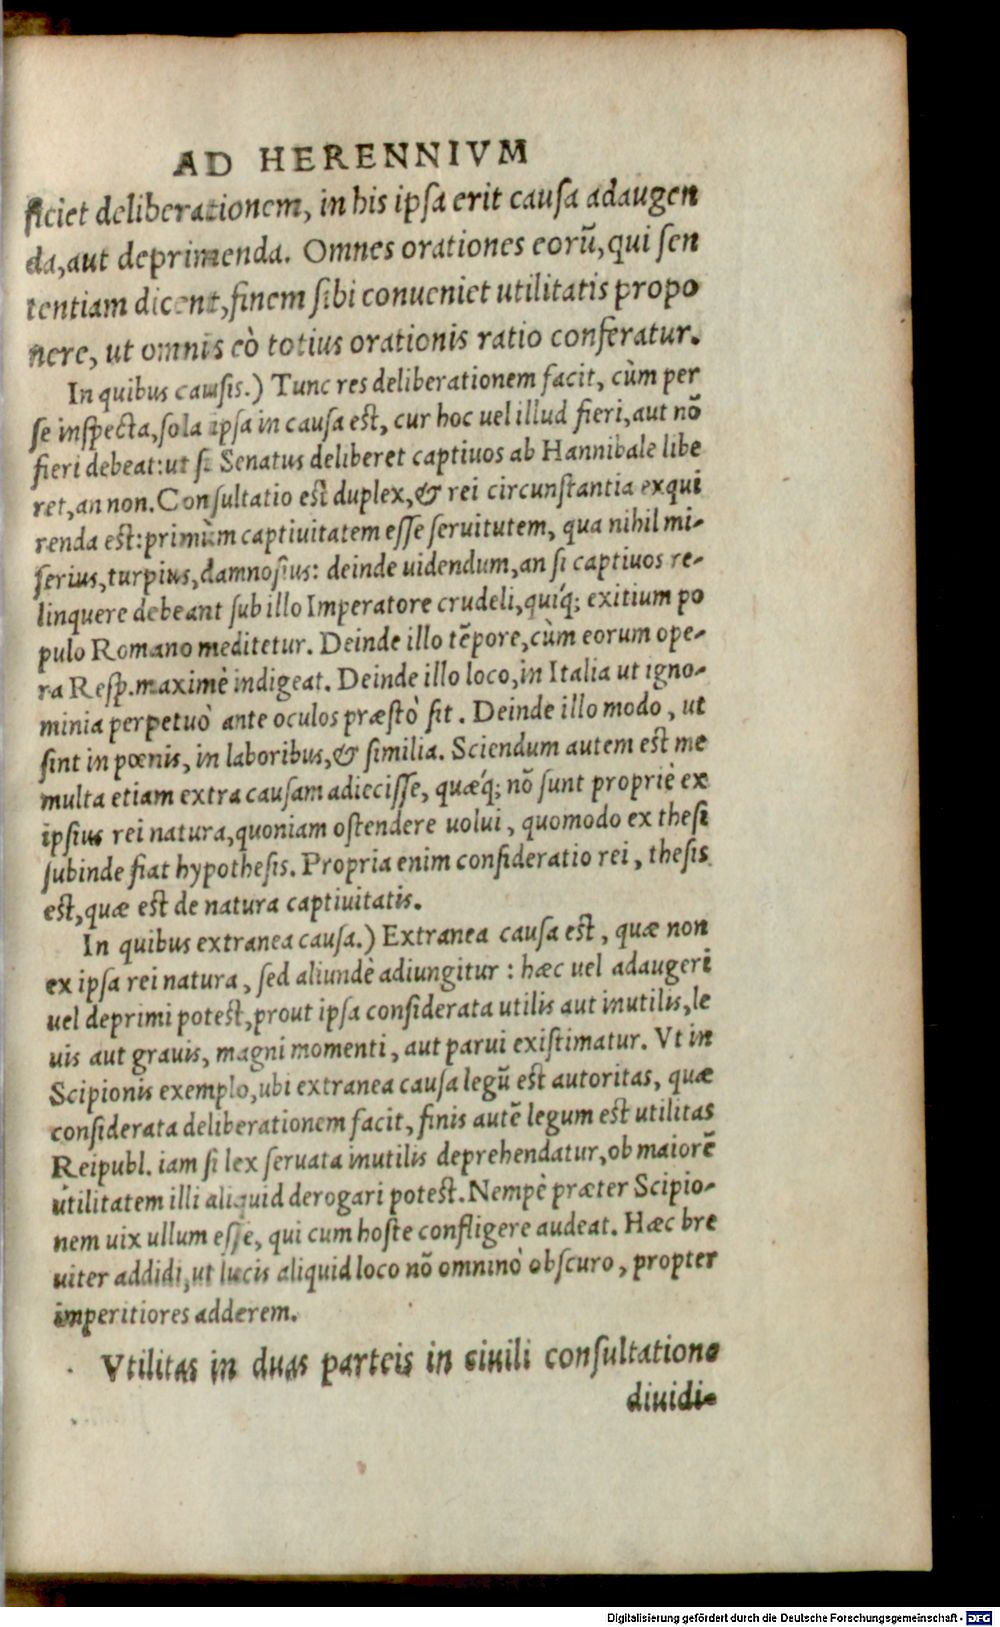 AD HERENNIVM
ficiet deliberationem, in his ipsa erit causa adaugen
da, aut deprimenda. Omnes orationes eorũ, qui sen
tentiam dicent, finem sibi conueniet utilitatis propo
nere, ut omnis eò totius orationis ratio conferatur.
In quibus causis.) Tunc res deliberationem facit, cùm per
se inspecta, sola ipsa in causa est, cur hoc uel illud fieri, aut nõ
fieri debeat: ut si Senatus deliberet captiuos ab Hannibale libe
ret, an non. Consultatio est duplex, & rei circunstantia exqui
renda est: primùm captiuitatem esse seruitutem, qua nihil mi-
serius, turpius, damnosius: deinde uidendum, an si captiuos re-
linquere debeant sub illo Imperatore crudeli, quíq; exitium po
pulo Romano meditetur. Deinde illo tẽpore, cùm eorum ope-
ra Resp. maximè indigeat. Deinde illo loco, in Italia ut igno-
minia perpetuò ante oculos præstò sit. Deinde illo modo, ut
sint in pœnis, in laboribus, & similia. Sciendum autem est me
multa etiam extra causam adiecisse, quæq́; nõ sunt propriè ex
ipsius rei natura, quoniam ostendere uolui, quomodo ex thesi
subinde fiat hypothesis. Propria enim consideratio rei, thesis
est, quæ est de natura captiuitatis.
In quibus extranea causa.) Extranea causa est, quæ non
ex ipsa rei natura, sed aliundè adiungitur: hæc uel adaugeri
uel deprimi potest, prout ipsa considerata utilis aut inutilis, le
uis aut grauis, magni momenti, aut parui existimatur. Vt in
Scipionis exemplo, ubi extranea causa legũ est autoritas, quæ
considerata deliberationem facit, finis autẽ legum est utilitas
Reipubl. iam si lex seruata inutilis deprehendatur, ob maiorẽ
utilitatem illi aliquid derogari potest. Nempè præter Scipio-
nem uix ullum esse, qui cum hoste confligere audeat. Hæc bre
uiter addidi, ut lucis aliquid loco nõ omninò obscuro, propter
imperitiores adderem.
Vtilitas in duas parteis in ciuili consultatione
diuidi-
Digitalisierung gefördert durch die Deutsche Forschungsgemeinschaft - DFG